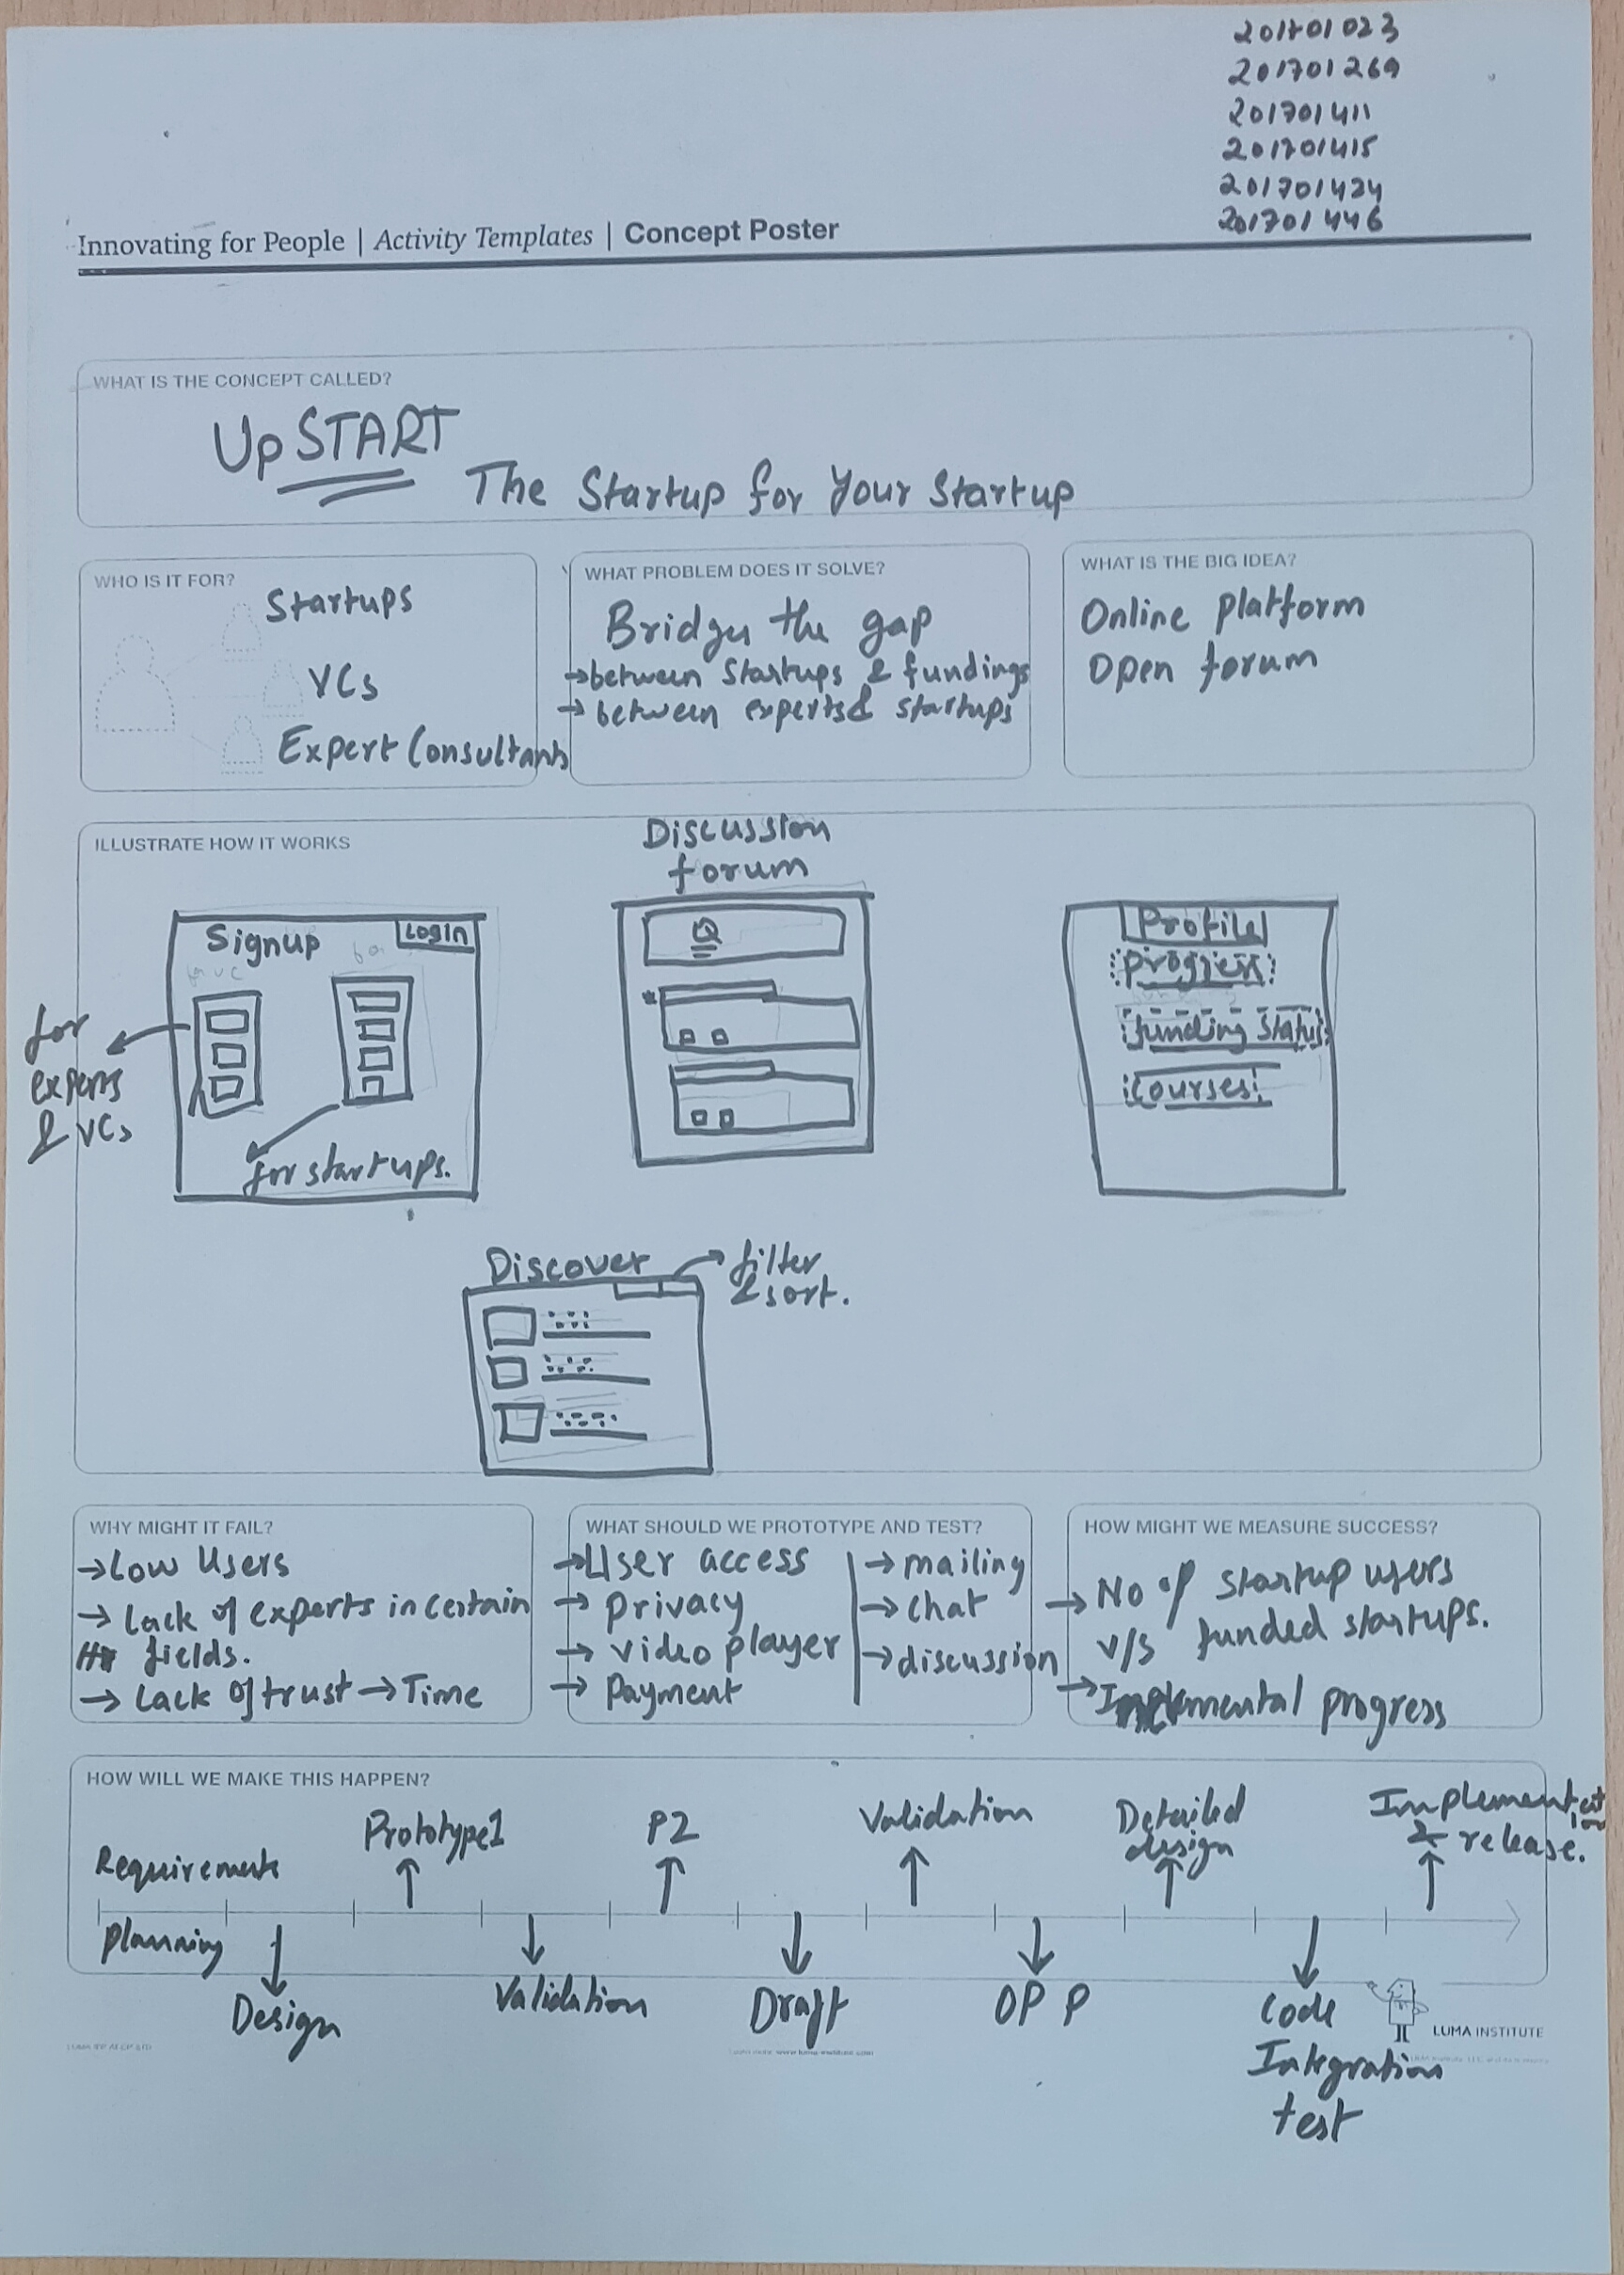 201701023
201701269
201701411
201701415
201701424
201701446
Innovating for People | Activity Templates | Concept Poster
WHAT IS THE CONCEPT CALLED?
UpSTART
The Startup for Your Startup
WHO IS IT FOR?
Startups
VCs
Expert Consultants
WHAT PROBLEM DOES IT SOLVE?
Bridges the gap
→between Startups & fundings
→ between experts & startups
WHAT IS THE BIG IDEA?
Online platform
Open forum
ILLUSTRATE HOW IT WORKS
Signup
Login
for
experts
& VCs
for startups.
Discussion
forum
Profile
Progress
funding Status
Courses
Discover
filter
& sort.
WHY MIGHT IT FAIL?
→Low Users
→ Lack of experts in certain
fields.
→ Lack of trust → Time
WHAT SHOULD WE PROTOTYPE AND TEST?
→User access
→ privacy
→ video player
→ Payment
→ mailing
→ chat
→discussion
HOW MIGHT WE MEASURE SUCCESS?
→ No of startup users
v/s funded startups.
→ progress
HOW WILL WE MAKE THIS HAPPEN?
Requirements
Planning
Design
Prototype1
Validation
P2
Draft
Validation
OPP
Detailed
design
Code
Integration
test
Implementation
& release.
LUMA INSTITUTE